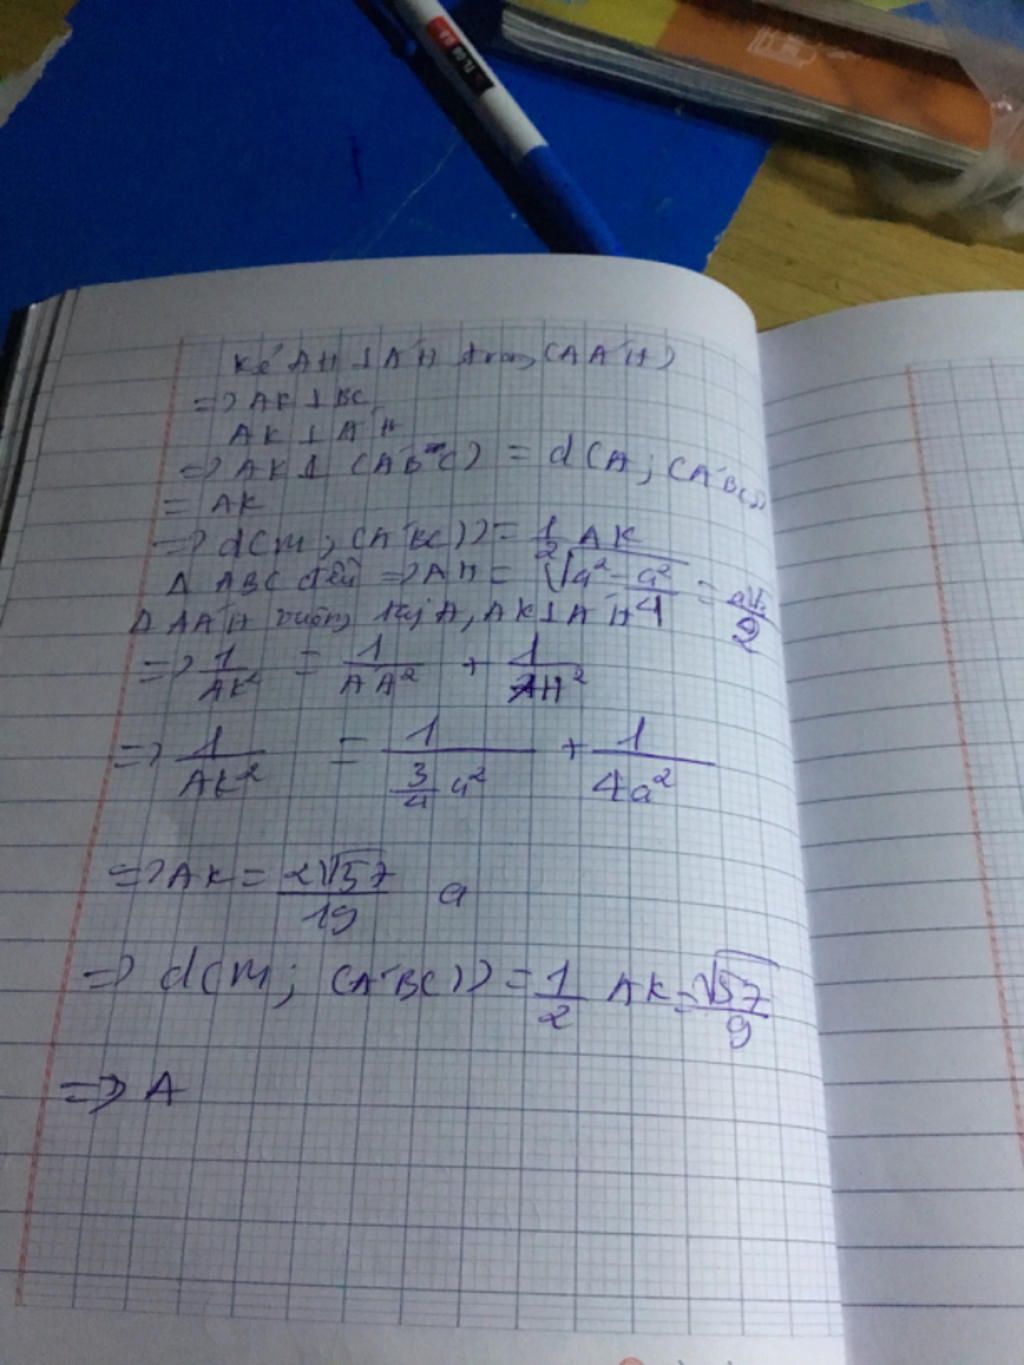 Kẻ AH ⊥ A'H trong (AA'H)
=> AK ⊥ BC
AK ⊥ A'H
=> AK ⊥ (A'BC) = d(A; (A'BC))
= AK
=> d(M; (A'BC)) = 1/2 AK
Δ ABC đều => AH = √(a² - a²/4) = a√3/2
Δ AA'H vuông tại A, AK ⊥ A'H
=> 1/AK² = 1/AA'² + 1/AH²
=> 1/AK² = 1/(3/4 a²) + 1/4a²
=> AK = 2√57/19 a
=> d(M; (A'BC)) = 1/2 AK = √57/9
=> A